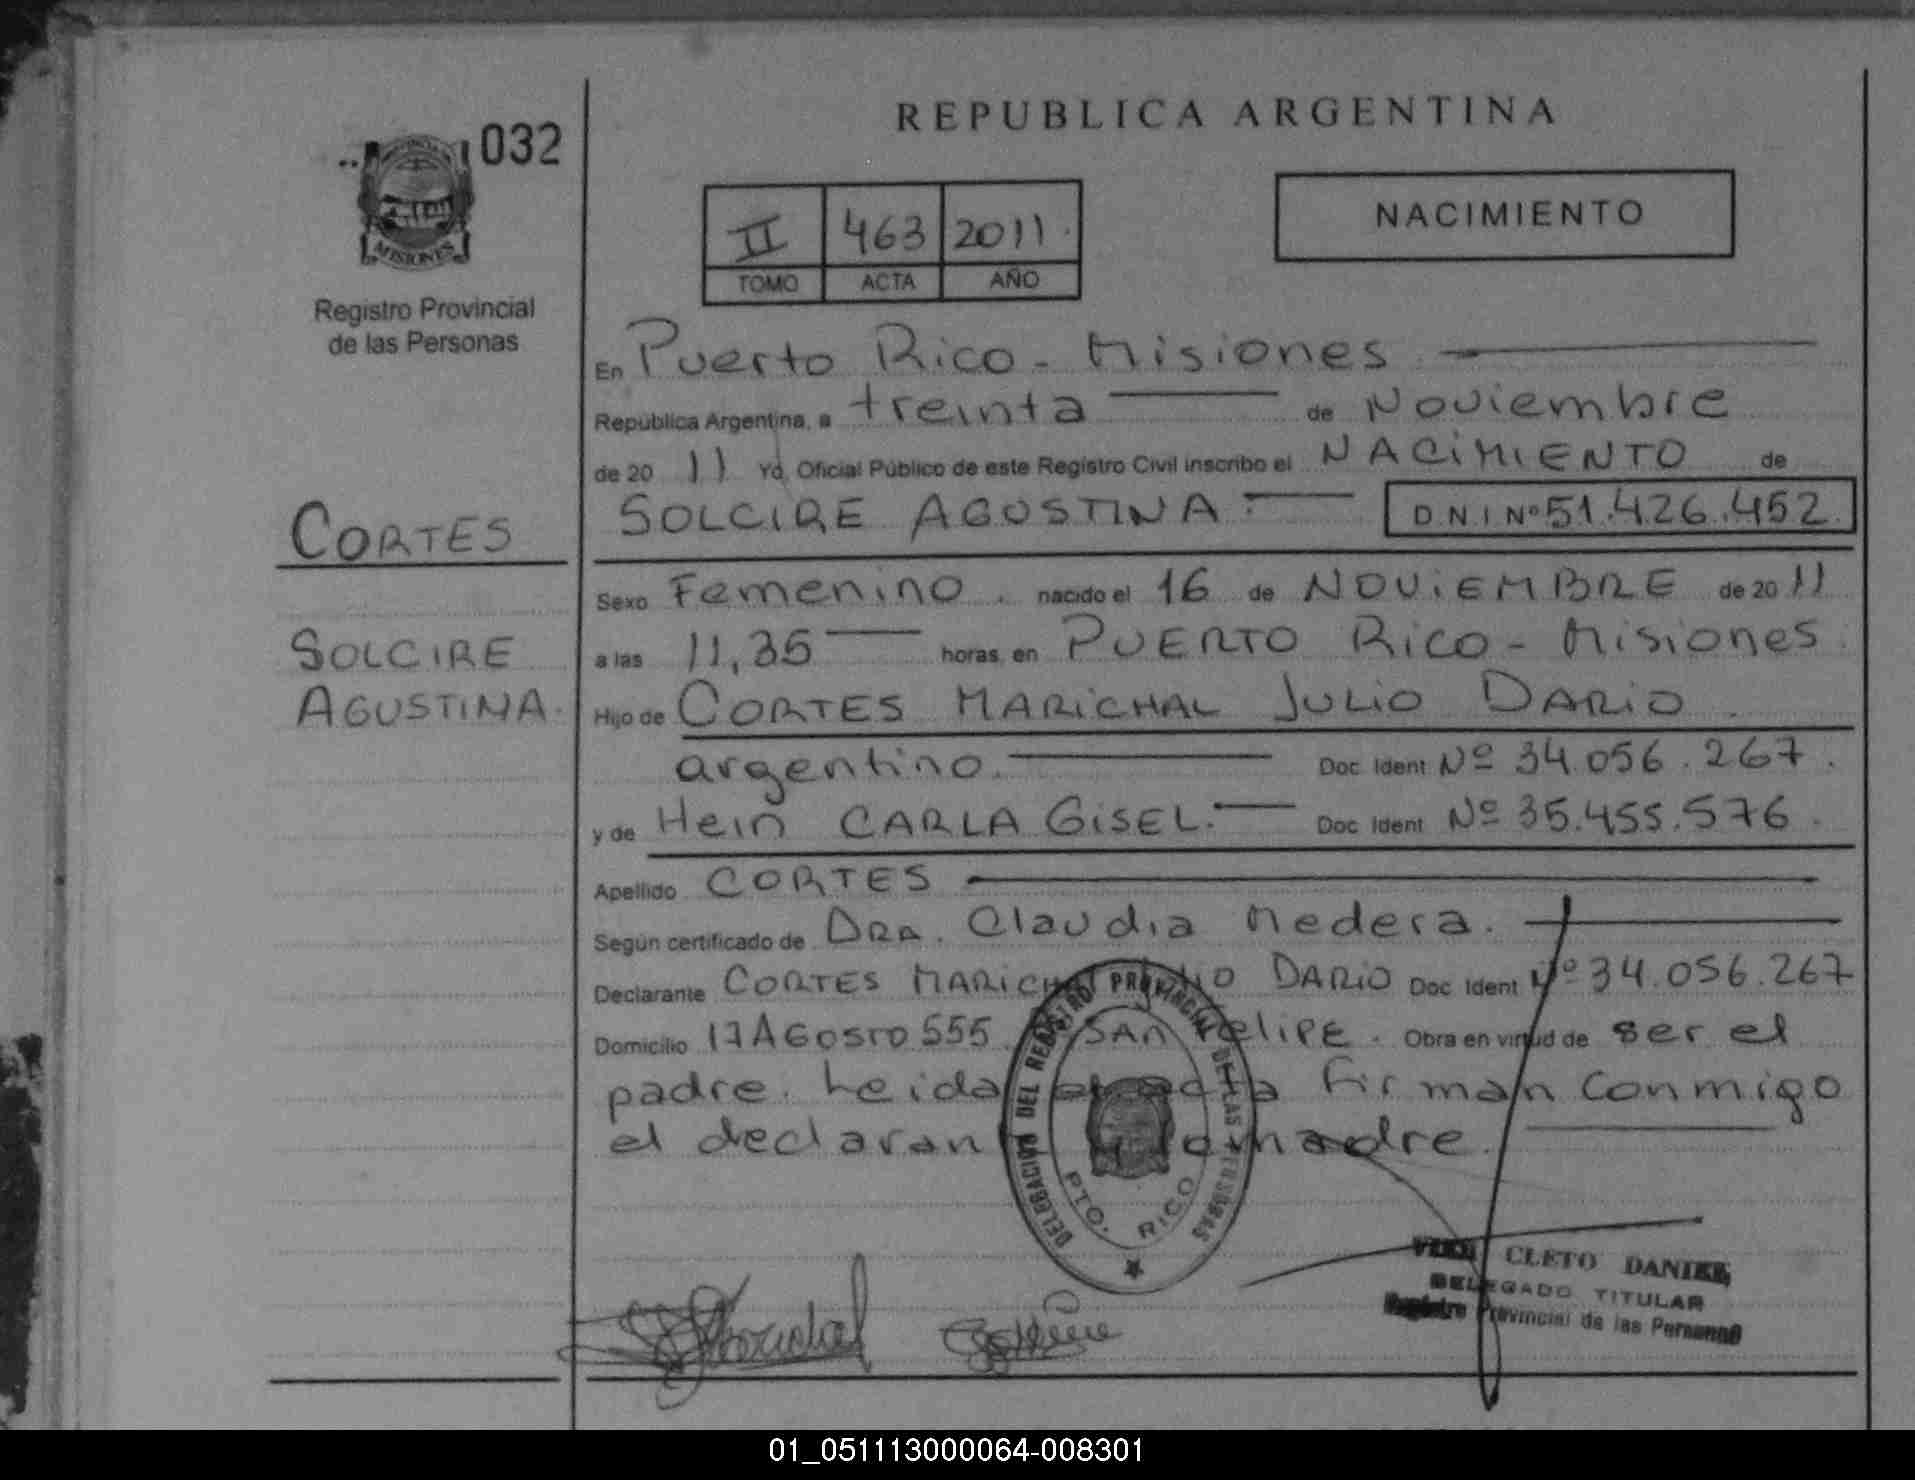 REPUBLICA ARGENTINA
032
MISIONES
Registro Provincial
de las Personas
II 463 2011
TOMO ACTA AÑO
NACIMIENTO
En Puerto Rico - Misiones
República Argentina, a treinta de Noviembre
de 20 11 Yo, Oficial Público de este Registro Civil inscribo el NACIMIENTO de
SOLCIRE AGUSTINA.
D.N.I Nº 51.426.452
CORTES
SOLCIRE
AGUSTINA.
Sexo Femenino. nacido el 16 de NOVIEMBRE de 20 11
a las 11,35 horas, en PUERTO Rico - Misiones.
Hijo de CORTES MARICHAL JULIO DARIO.
argentino. Doc. Ident. Nº 34.056.267.
y de Hein CARLA GISEL. Doc. Ident. Nº 35.455.576.
Apellido CORTES
Según certificado de DRA. Claudia Medera.
Declarante CORTES MARICHAL JULIO DARIO Doc. Ident. Nº 34.056.267
Domicilio 17 AGOSTO 555. SAN FELIPE. Obra en virtud de ser el
padre. Leida el acta firman conmigo
el declarante madre.
DELEGACION DEL REGISTRO PROVINCIAL DE LAS PERSONAS
PTO. RICO
CLETO DANIEL
DELEGADO TITULAR
Registro Provincial de las Personas
01_051113000064-008301